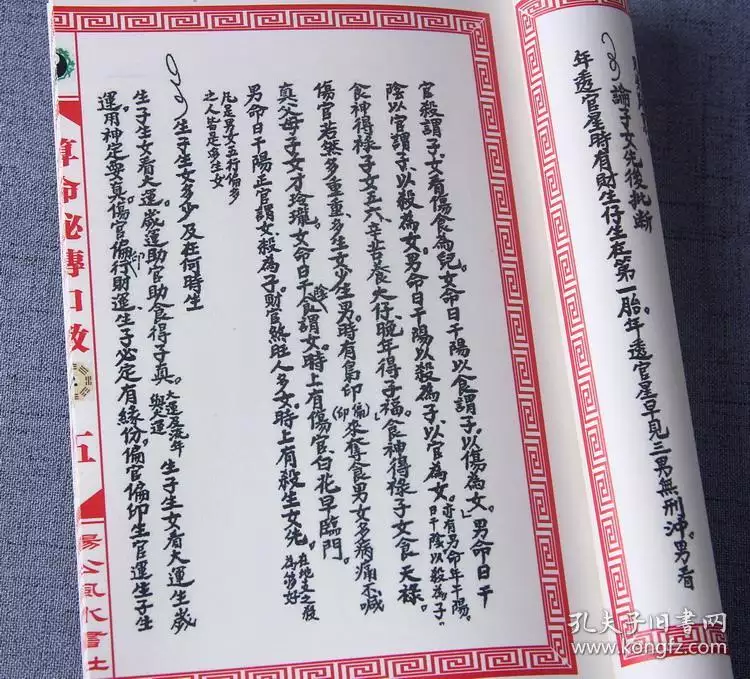 論子女先後批斷
年透官星時有財生仔生在第一胎。年透官星早見三男無刑沖。男看
官殺謂子女看傷食為兒。女命日干陽以食謂子。以傷為女。」男命日干
陰以官謂子以殺為女。男命日干陽以殺為子以官為女。亦有男命年干陽。日干陰以殺為子。
食神得祿子女五六。辛苦養大仔。晚年得子福。食神得祿子女食天祿。
傷官若然多重重。多生女少生男。時有梟印(偏印)來奪食男女多病痛不喊
真父母子女才玲瓏。女命日干陰食謂女。時上有傷官。白花早臨門。
男命日干陽正官謂女殺為子財官煞旺人多女。時上有殺生女先。在地支之殺為第好
凡是男女五行偏多
之人皆定多生女
生子生女多少及在何時生
生子生女看大運。歲運助官助食得子真。大運是流年與大運 生子生女看大運生歲
運用神定要真。傷官偏印行財運生子必定有緣份。偏官偏印生官運生子生
算命秘傳口訣
五
楊公風水書社
孔夫子旧书网
www.kongfz.com